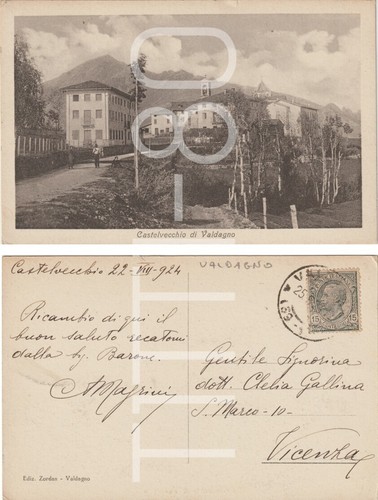 Castelvecchio di Valdagno
Castelvecchio 22-VIII-924
VALDAGNO
Ricambio di qui il
buon saluto recatomi
dalla Sig. Barone.
AMagrini
15 15
Gentile Signorina
dott. Clelia Gallina
S. Marco-10-
Vicenza
Ediz. Zordan - Valdagno